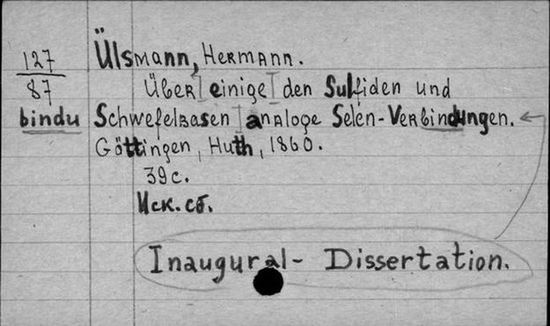 127
87
bindu
Ülsmann, Hermann.
Über einige den Sulfiden und
Schwefelbasen analoge Selen-Verbindungen.
Göttingen, Huth, 1860.
39с.
Иск. сб.
Inaugural- Dissertation.